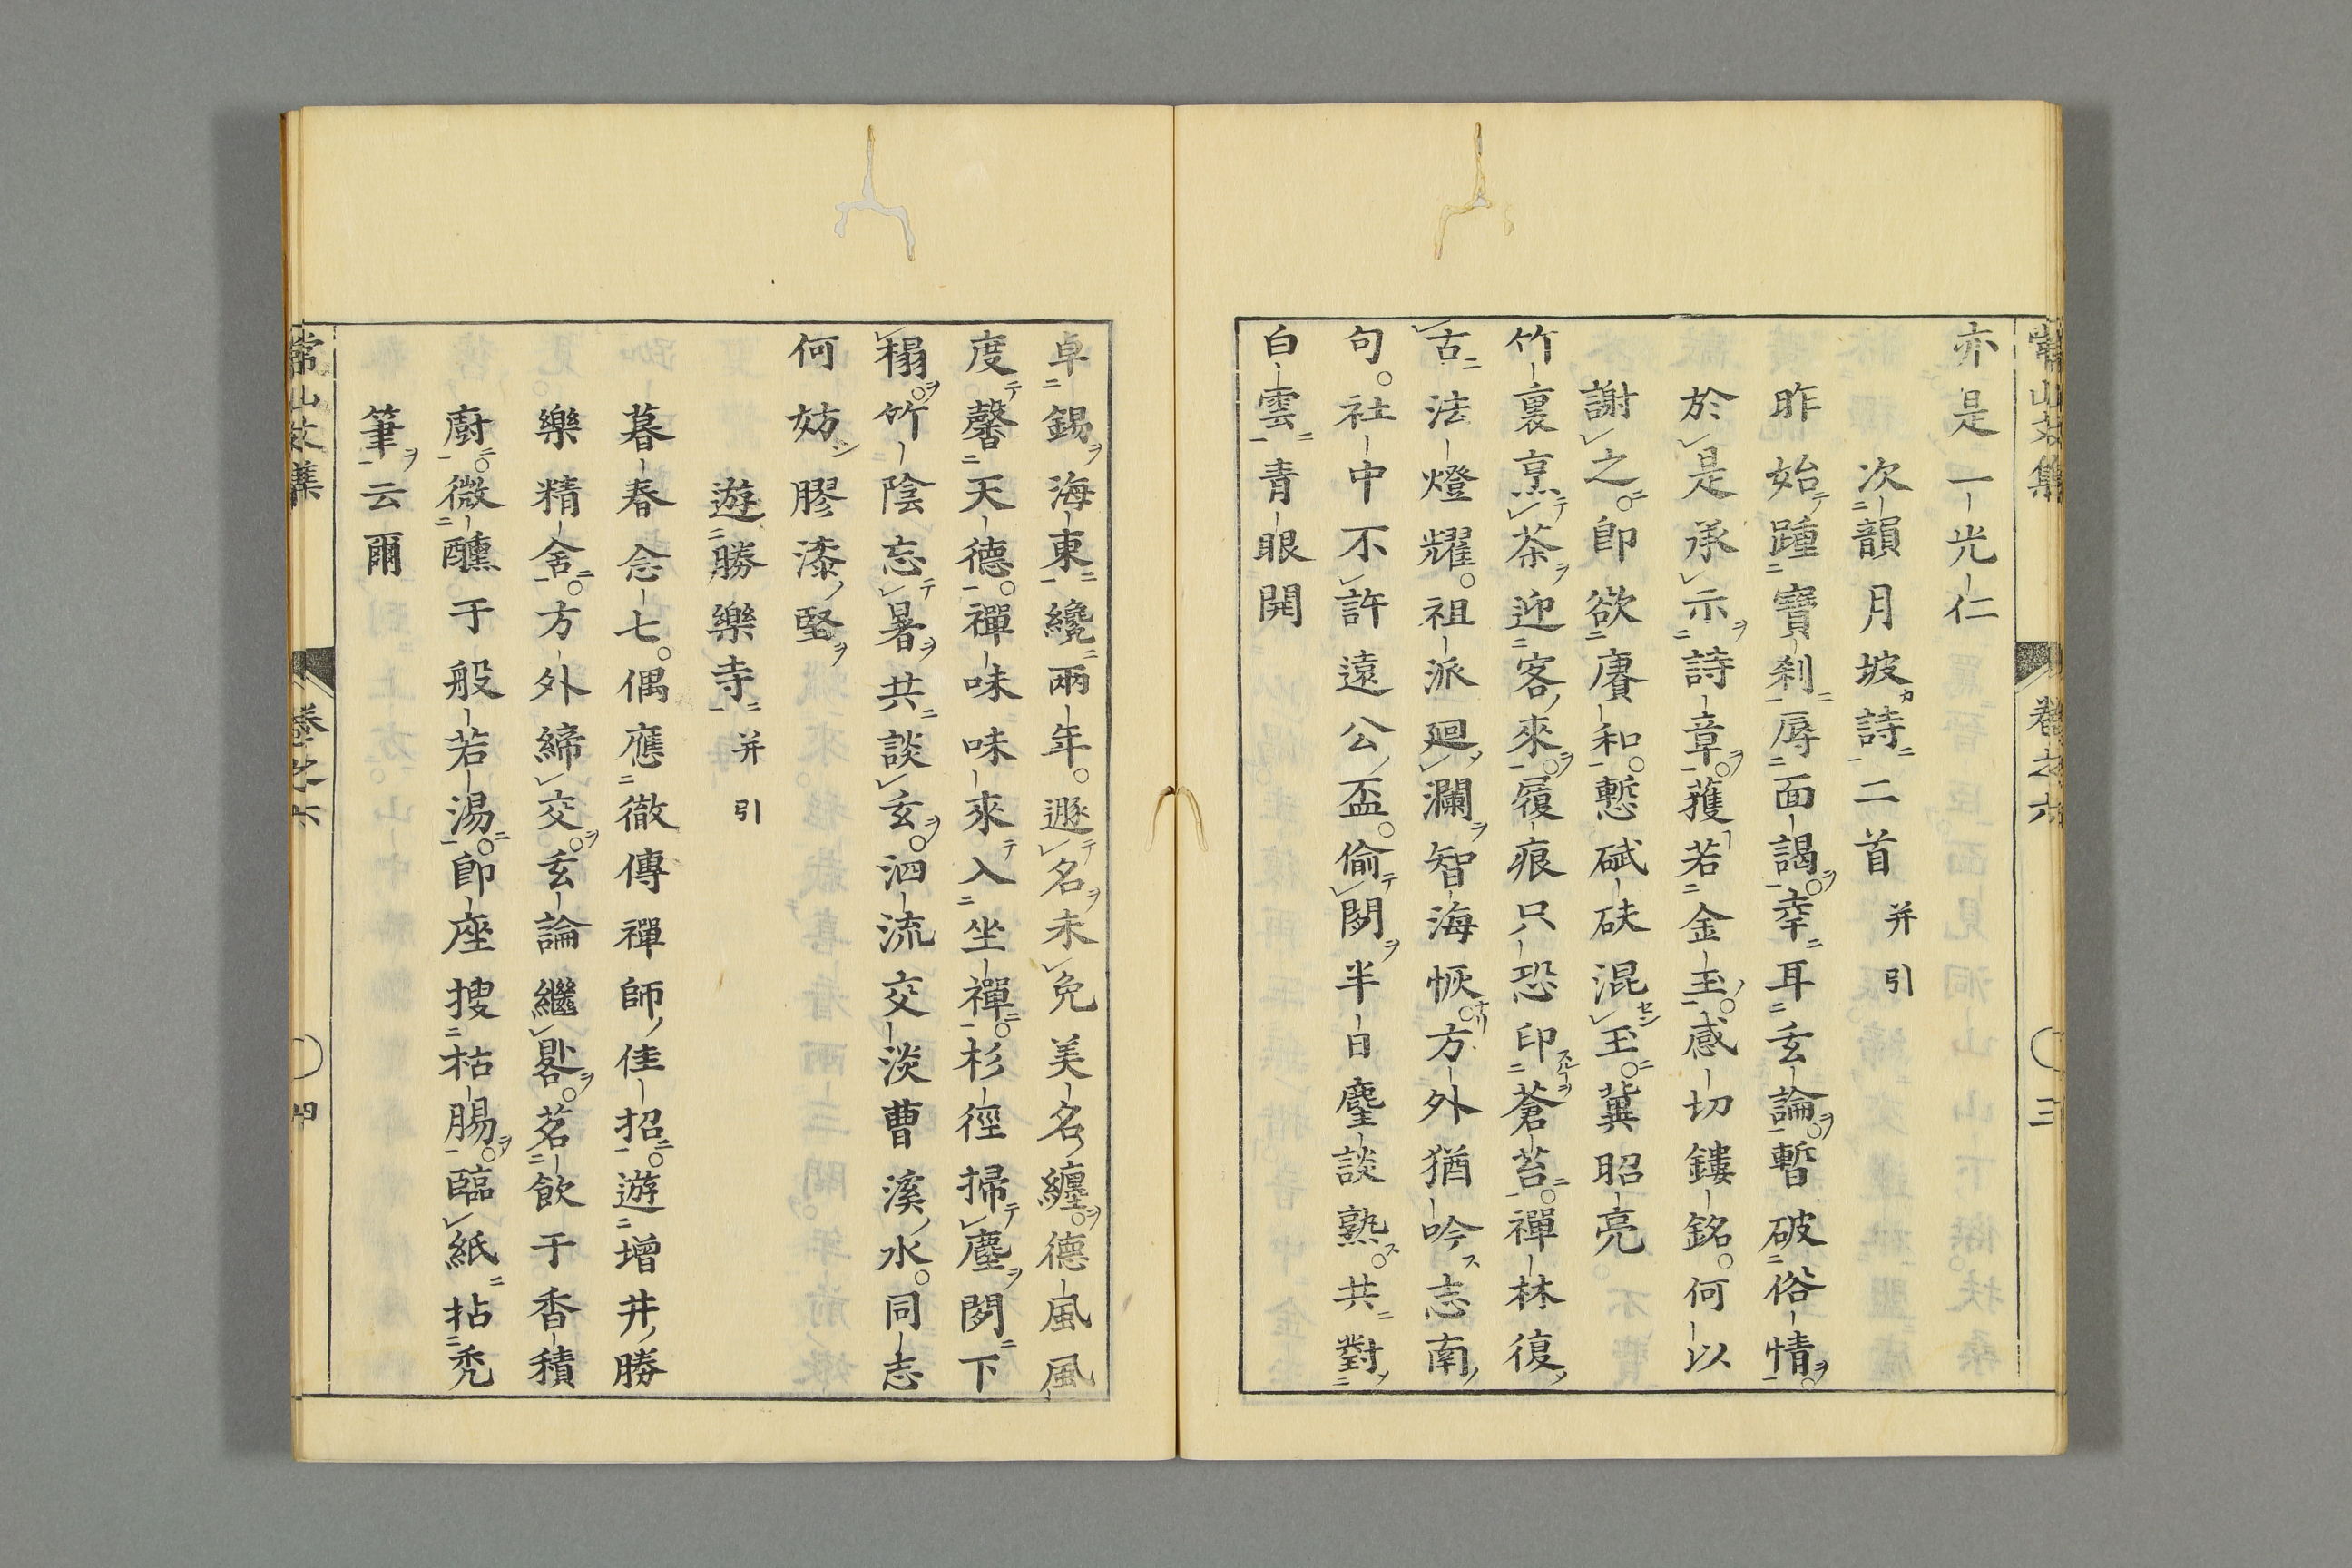 常山文集 卷之六 三
亦是一光仁
次韻月坡詩二首 并引
昨始踵寶刹辱面謁幸耳玄論暫破俗情
於是承示詩章獲若金玉感切鏤銘何以
謝之卽欲賡和慙碔砆混玉冀昭亮
竹裏烹茶迎客來履痕只恐印蒼苔禪林復
古法燈耀祖派廻瀾智海恢方外猶吟志南
句社中不許遠公盃偷閑半日麈談熟共對
白雲青眼開
卓錫海東纔兩年遯名未免美名纏德風風
度馨天德禪味味來入坐禪杉徑掃塵閑下
榻竹陰忘暑共談玄泗流交淡曹溪水同志
何妨膠漆堅
遊勝樂寺 并引
暮春念七偶應徹傳禪師佳招遊增井勝
樂精舍方外締交玄論繼晷茗飮于香積
廚微醺于般若湯卽座搜枯腸臨紙拈禿
筆云爾
常山文集 卷之六 四